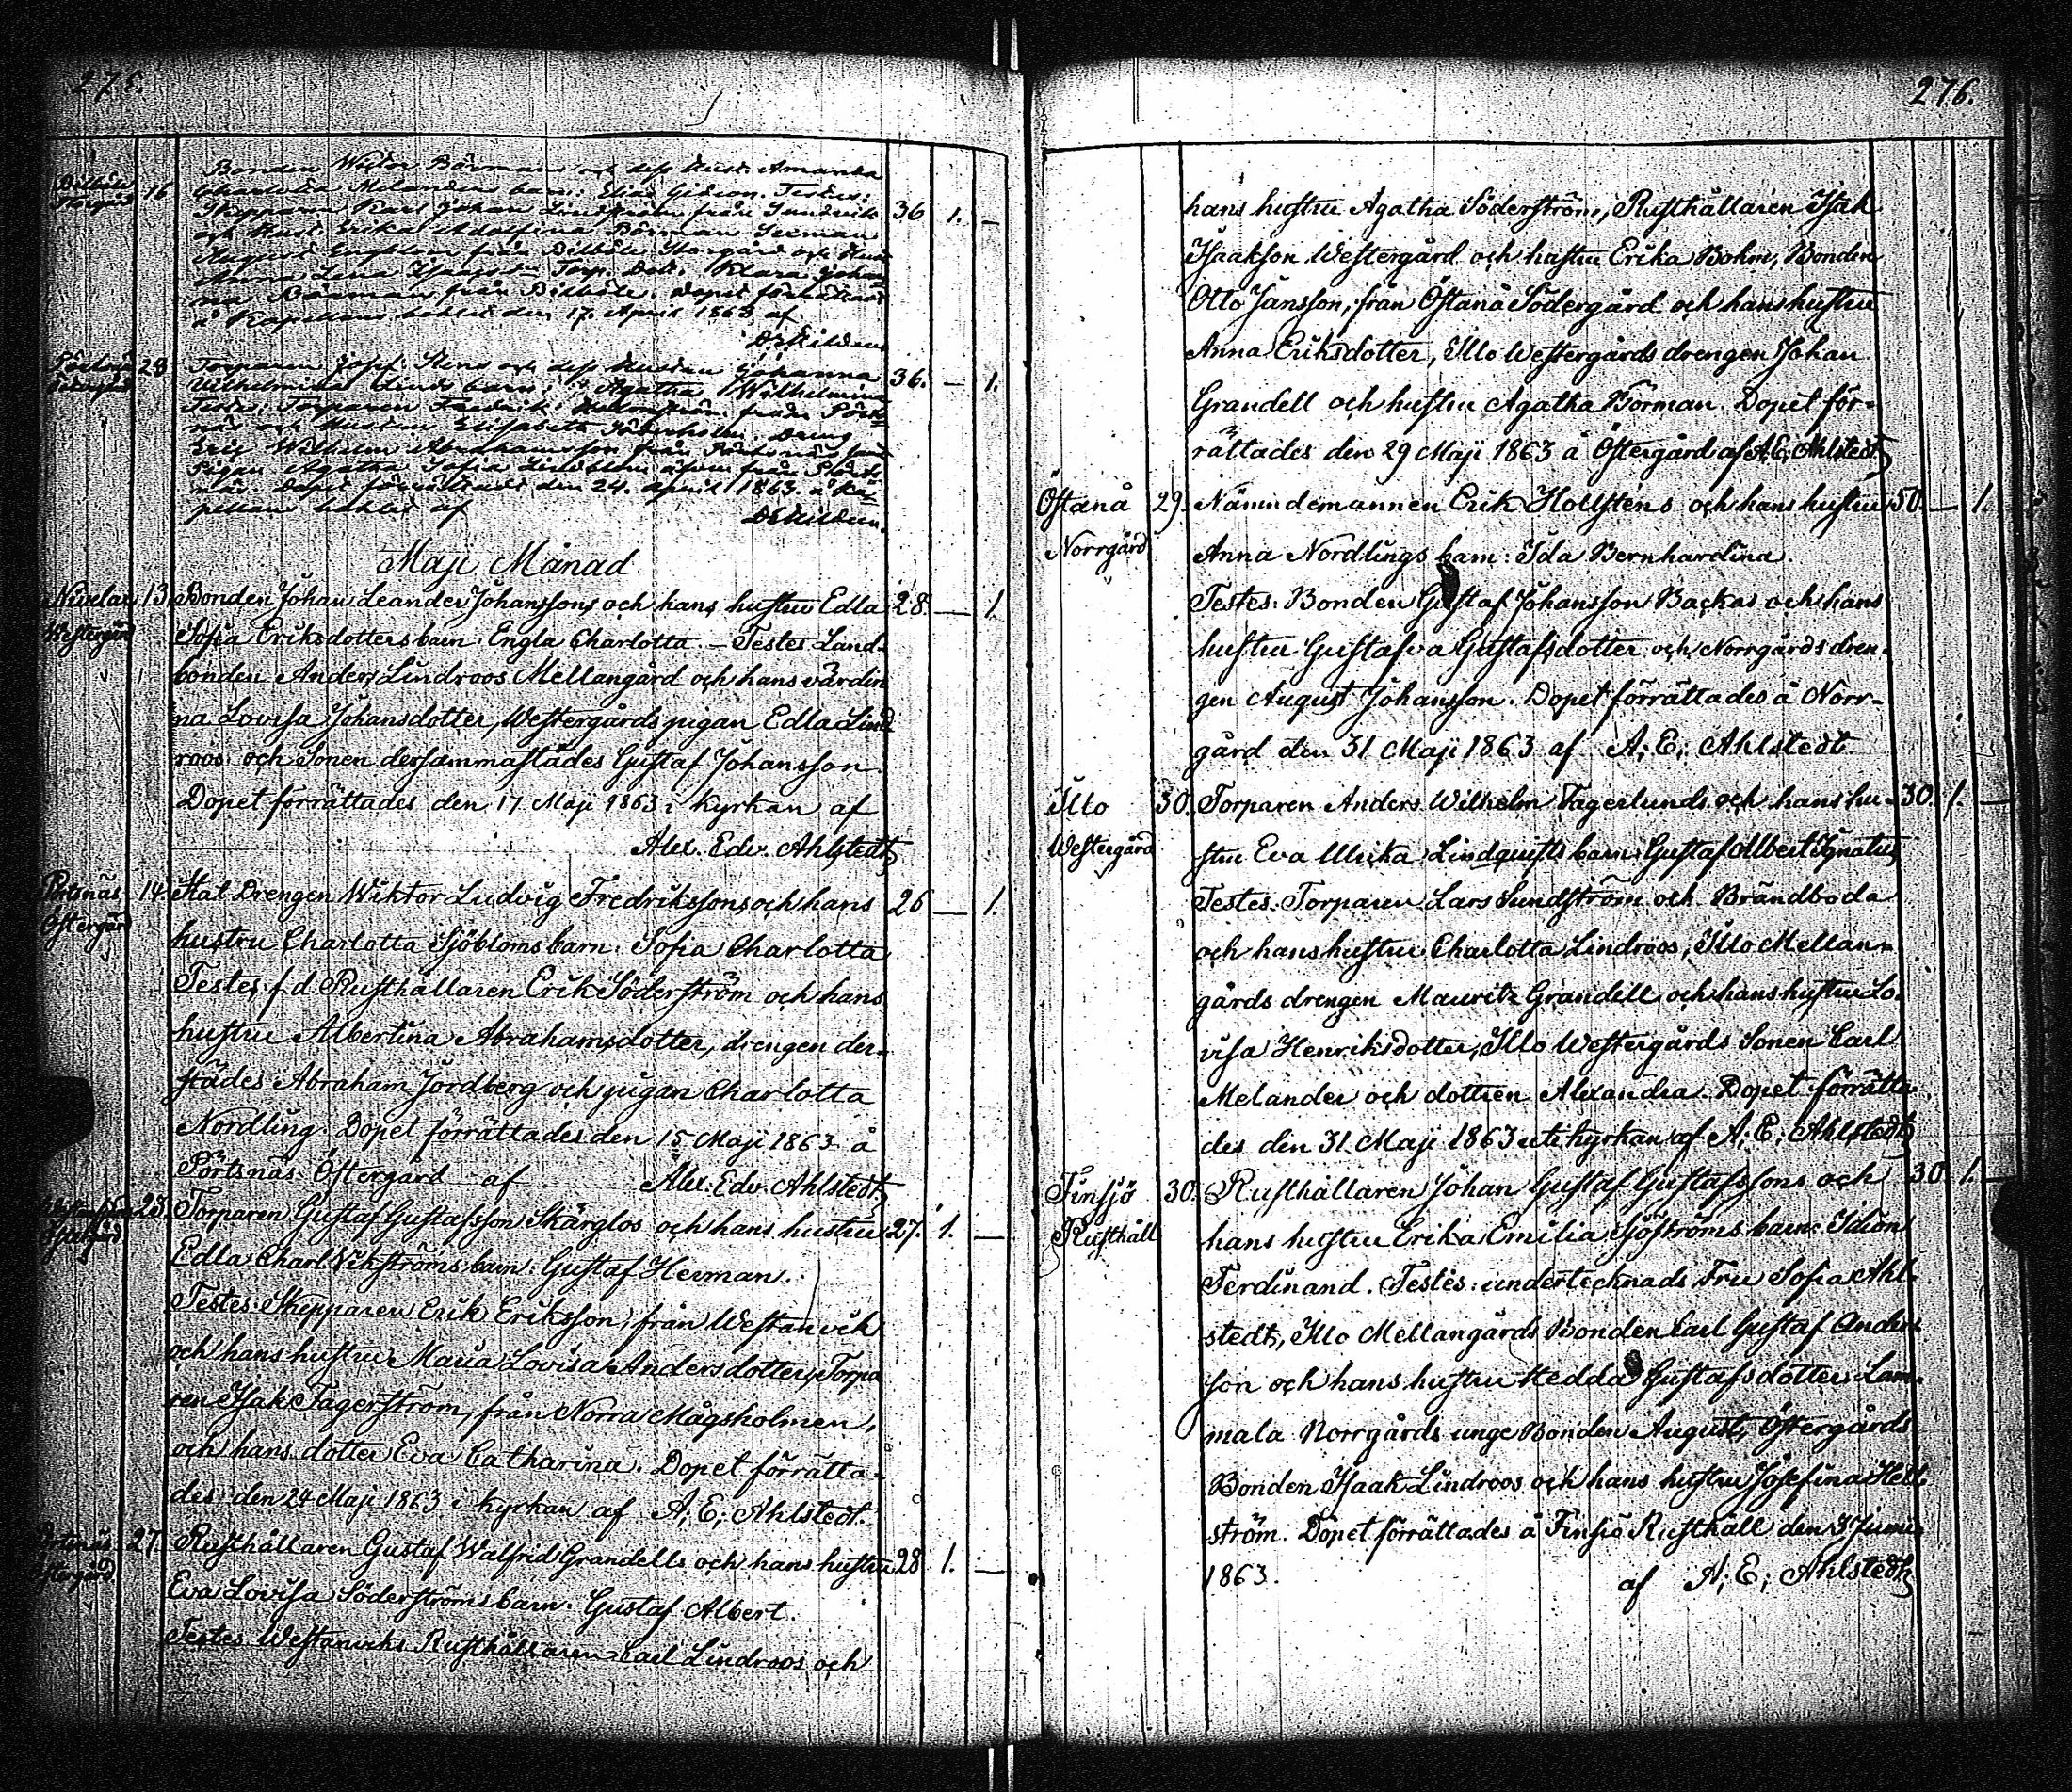 275.
Bonden Victor Börman och dess Hust. Amanda
16
Charlotta Melanders barn: Elias Gideon. Testes:
Skepparen Karl Johan Lindström från Sundvik
36 1. —
och Hust. Erika Adolfina Börman
August från Bölsböle Storgård och
Anna Lena Torp. Dot. Klara Johan
na Börman från Bölsböle. Dopet förrättades
å Kapellans bohlet den 17. April 1863 af
23 Torparen Josef och dess Hustru Johanna
Wilhelmina Linds barn: Agatha Wilhelmina
36. — 1.
Testes: Torparen Fredrik från Pörts
näs och Hustrun Elisabeth Dreng
Eric Wilhelm Abrahamsson från Pörtsnäs samt
Pigan Agatha Sofia Lindblom äfven från Pörts
näs. Dopet förrättades den 24. April 1863. å Ka
pellans bohlet af
Maji Månad
Nivelax 13. Bonden Johan Leander Johanssons och hans hustru Edla 28. — 1.
Westergård Sofia Eriksdotters barn: Engla Charlotta. — Testes Land-
bonden Anders Lindroos Mellangård och hans värdin
na Lovisa Johansdotter, Westergårds pigan Edla Lind
roos och Sonen dersammastädes Gustaf Johansson.
Dopet förrättades den 17 Maji 1863 i Kyrkan af
Alex. Edv. Ahlstedt
Pörtsnäs 14. Stat Drengen Wiktor Ludvig Fredrikssons och hans 26 — 1.
Östergård
hustru Charlotta Sjöbloms barn: Sofia Charlotta
Testes: f. d. Rusthållaren Erik Söderström och hans
hustru Albertina Abrahamsdotter, drengen der-
städes Abraham Jordberg och pigan Charlotta
Nordling. Dopet förrättades den 15 Maji 1863. å
Pörtsnäs Östergård af Alex. Edv. Ahlstedt
23. Torparen Gustaf Gustafsson Skärglos och hans hustru 27. 1. —
Östergård
Edla Charl Vikströms barn: Gustaf Herman.
Testes: Skepparen Erik Eriksson, från Westanvik
och hans hustru Maria Lovisa Andersdotter, Torpa
ren Isak Fagerström, från Norra Mågsholmen,
och hans dotter Eva Catharina. Dopet förrätta-
des den 24 Maji 1863 i kyrkan af A; E; Ahlstedt.
Pörtsnäs 27. Rusthållaren Gustaf Walfrid Grandells och hans hustru 28 1. —
Östergård
Eva Lovisa Söderströms barn: Gustaf Albert.
Testes Westanviks Rusthållaren Carl Lindroos och
276.
hans hustru Agatha Söderström, Rusthållaren Isak
Isaakson Westergård och hustru Erika Bohm, Bonden
Otto Jansson, från Östanå Södergård och hans hustru
Anna Eriksdotter, Illo Westergårds drengen Johan
Grandell och hustru Agatha Borman. Dopet för-
rättades den 29 Maji 1863 å Östergård af A; E; Ahlstedt
Östanå 29. Nämndemannen Erik Hollstens och hans hustru 50. — 1.
Norrgård Anna Nordlings barn: Ida Bernhardina.
Testes: Bonden Gustaf Johansson Backas och hans
hustru Gustafva Gustafsdotter och Norrgårds dren-
gen August Johansson. Dopet förrättades å Norr-
gård den 31 Maji 1863 af A; E; Ahlstedt.
Illo 30. Torparen Anders Wilhelm Fagerlunds och hans hu- 30. 1. —
Westergård stru Eva Ulrika Lindquists barn: Gustaf Albert Ignatius
Testes: Torparen Lars Sundström och Brändboda
och hans hustru Charlotta Lindroos, Illo Mellan-
gårds drengen Mauritz Grandell och hans hustru Lo-
visa Henriksdotter, Illo Westergårds Sonen Carl
Melander och dottren Alexandra. Dopet förrätta-
des den 31 Maji 1863 uti kyrkan af A; E; Ahlstedt
Finsjö 30. Rusthållaren Johan Gustaf Gustafssons och 30. 1. —
Rusthåll hans hustru Erika Emilia Sjöströms barn: Idion
Ferdinand. Testes: undertecknads Fru Sofia Ahl-
stedt, Illo Mellangårds Bonden Carl Gustaf Anders
son och hans hustru Hedda Gustafsdotter Lam-
mala Norrgårds unge Bonden August, Östergårds
Bonden Isaak Lindroos och hans hustru Josefina Hell-
ström. Dopet förrättades å Finsjö Rusthåll den 3 Junii
1863. af A; E; Ahlstedt